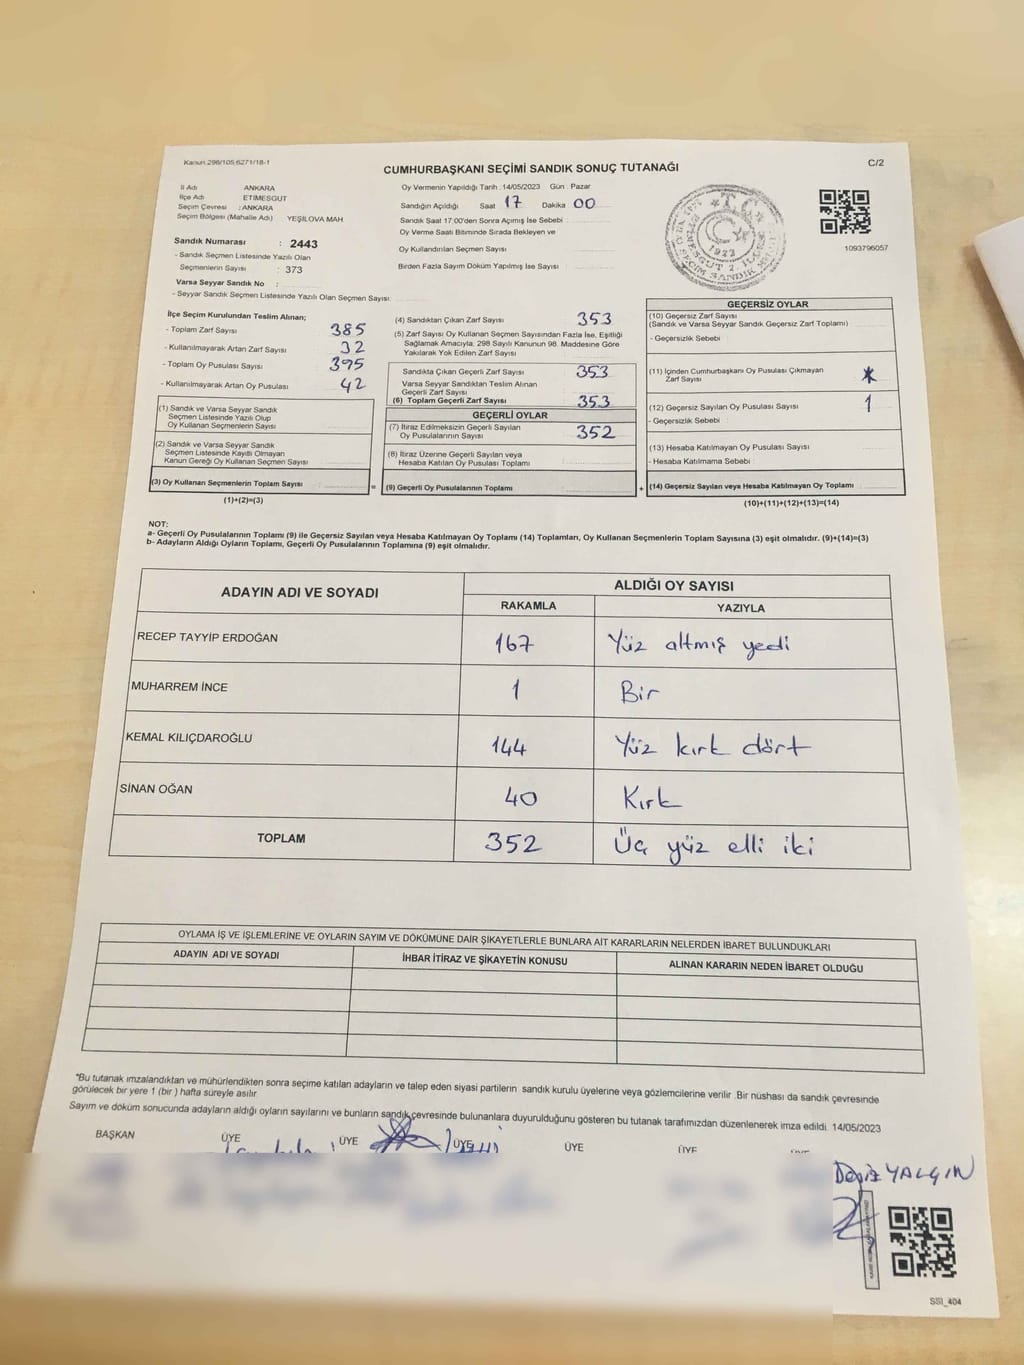 Kanun 298/105,6271/18-1
C/2
CUMHURBAŞKANI SEÇİMİ SANDIK SONUÇ TUTANAĞI
İl Adı ANKARA
İlçe Adı ETİMESGUT
Seçim Çevresi : ANKARA
Seçim Bölgesi (Mahalle Adı) YEŞİLOVA MAH.
Sandık Numarası : 2443
- Sandık Seçmen Listesinde Yazılı Olan
Seçmenlerin Sayısı : 373
Varsa Seyyar Sandık No :
- Seyyar Sandık Seçmen Listesinde Yazılı Olan Seçmen Sayısı:
Oy Vermenin Yapıldığı Tarih : 14/05/2023 Gün : Pazar
Sandığın Açıldığı Saat 17 Dakika 00
Sandık Saat 17:00'den Sonra Açımış İse Sebebi :
Oy Verme Saati Bitiminde Sırada Bekleyen ve
Oy Kullandırılan Seçmen Sayısı
Birden Fazla Sayım Döküm Yapılmış İse Sayısı :
T.C.
1923
1093796057
İlçe Seçim Kurulundan Teslim Alınan;
- Toplam Zarf Sayısı 385
- Kullanılmayarak Artan Zarf Sayısı 32
- Toplam Oy Pusulası Sayısı 395
- Kullanılmayarak Artan Oy Pusulası 42
(1) Sandık ve Varsa Seyyar Sandık
Seçmen Listesinde Yazılı Olup
Oy Kullanan Seçmenlerin Sayısı
(2) Sandık ve Varsa Seyyar Sandık
Seçmen Listesinde Kayıtlı Olmayan
Kanun Gereği Oy Kullanan Seçmen Sayısı
(3) Oy Kullanan Seçmenlerin Toplam Sayısı :
(1)+(2)=(3)
=
(4) Sandıktan Çıkan Zarf Sayısı 353
(5) Zarf Sayısı Oy Kullanan Seçmen Sayısından Fazla İse, Eşitliği
Sağlamak Amacıyla, 298 Sayılı Kanunun 98. Maddesine Göre
Yakılarak Yok Edilen Zarf Sayısı
Sandıkta Çıkan Geçerli Zarf Sayısı 353
Varsa Seyyar Sandıktan Teslim Alınan
Geçerli Zarf Sayısı
(6) Toplam Geçerli Zarf Sayısı 353
GEÇERLİ OYLAR
(7) İtiraz Edilmeksizin Geçerli Sayılan
Oy Pusulalarının Sayısı 352
(8) İtiraz Üzerine Geçerli Sayılan veya
Hesaba Katılan Oy Pusulası Toplamı
(9) Geçerli Oy Pusulalarının Toplamı
+
GEÇERSİZ OYLAR
(10) Geçersiz Zarf Sayısı
(Sandık ve Varsa Seyyar Sandık Geçersiz Zarf Toplamı)
- Geçersizlik Sebebi
(11) İçinden Cumhurbaşkanı Oy Pusulası Çıkmayan
Zarf Sayısı
(12) Geçersiz Sayılan Oy Pusulası Sayısı 1
- Geçersizlik Sebebi :
(13) Hesaba Katılmayan Oy Pusulası Sayısı
- Hesaba Katılmama Sebebi :
(14) Geçersiz Sayılan veya Hesaba Katılmayan Oy Toplamı
(10)+(11)+(12)+(13)=(14)
NOT:
a- Geçerli Oy Pusulalarının Toplamı (9) ile Geçersiz Sayılan veya Hesaba Katılmayan Oy Toplamı (14) Toplamları, Oy Kullanan Seçmenlerin Toplam Sayısına (3) eşit olmalıdır. (9)+(14)=(3)
b- Adayların Aldığı Oyların Toplamı, Geçerli Oy Pusulalarının Toplamına (9) eşit olmalıdır.
ADAYIN ADI VE SOYADI
ALDIĞI OY SAYISI
RAKAMLA YAZIYLA
RECEP TAYYİP ERDOĞAN 167 Yüz altmış yedi
MUHARREM İNCE 1 Bir
KEMAL KILIÇDAROĞLU 144 Yüz kırk dört
SİNAN OĞAN 40 Kırk
TOPLAM 352 Üç yüz elli iki
OYLAMA İŞ VE İŞLEMLERİNE VE OYLARIN SAYIM VE DÖKÜMÜNE DAİR ŞİKAYETLERLE BUNLARA AİT KARARLARIN NELERDEN İBARET BULUNDUKLARI
ADAYIN ADI VE SOYADI İHBAR İTİRAZ VE ŞİKAYETİN KONUSU ALINAN KARARIN NEDEN İBARET OLDUĞU
*Bu tutanak imzalandıktan ve mühürlendikten sonra seçime katılan adayların ve talep eden siyasi partilerin sandık kurulu üyelerine veya gözlemcilerine verilir .Bir nüshası da sandık çevresinde
görülecek bir yere 1 (bir ) hafta süreyle asılır.
Sayım ve döküm sonucunda adayların aldığı oyların sayılarını ve bunların sandık çevresinde bulunanlara duyurulduğunu gösteren bu tutanak tarafımızdan düzenlenerek imza edildi. 14/05/2023
BAŞKAN ÜYE ÜYE ÜYE ÜYE ÜYE
Deniz YALÇIN
SSI_404